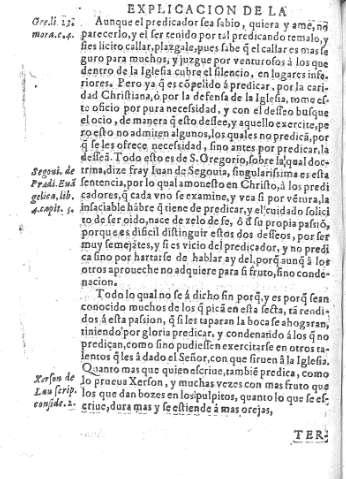 EXPLICACION DE LA
Gre.li. 23.
mora.c.4.
Aunque el predicador sea sabio, quiera y ame, nó
parecerlo, y el ser tenido por tal predicando temalo, y
si es licito callar, plazgale, pues sabe q̃ el callar es mas se
guro para muchos, y juzgue por venturosos à los que
dentro de la Iglesia cubre el silencio, en lugares infe-
riores. Pero ya q̃ es cõpelido à predicar, por la cari-
dad Christiana, ó por la defensa de la Iglesia, tome es-
te oficio por pura necessidad, y con el desseo busque
el ocio, de manera q̃ esto dessee, y aquello exercite, pe
ro esto no admiten algunos, los quales no predicã, por
q̃ se les ofrece necessidad, sino antes por predicar, la
desseã. Todo esto es de S. Gregorio, sobre la qual doc-
Segoui. de
Predi. Euã
gelica, lib.
4. capit. 5.
trina, dize fray Iuan de Segouia, singularissima es esta
sentencia, por lo qual amonesto en Christo, à los predi
cadores, q̃ cada vno se examine, y vea si por vẽtura, la
insaciable hãbre q̃ tiene de predicar, y el cuidado solici
to de ser oido, nace de zelo de fè, ó d̃ su propia passiõ,
porque es dificil distinguir estos dos desseos, por ser
muy semejãtes, y si es vicio del predicador, y no predi
ca sino por hartarse de hablar ay del, porq̃ aunq̃ à los
otros aproueche no adquiere para si fruto, sino conde-
nacion.
Todo lo qual no se à dicho sin porq̃, y es porq̃ sean
conocido muchos de los q̃ picã en esta secta, tã rendi-
dos à esta passion, q̃ si les taparan la boca se ahogaran,
tiniendo por gloria predicar, y condenãdo à los q̃ no
predican, como sino pudiessen exercitarse en otros ta-
lentos q̃ les à dado el Señor, con que siruen à la Iglesia.
Xerson de
Lau scrip.
conside. 2.
Quanto mas que quien escriue, tambiẽ predica, como
lo prueua Xerson, y muchas vezes con mas fruto que
los que dan bozes en los pulpitos, quanto lo que se es-
criue, dura mas y se estiende à mas orejas,
TER-